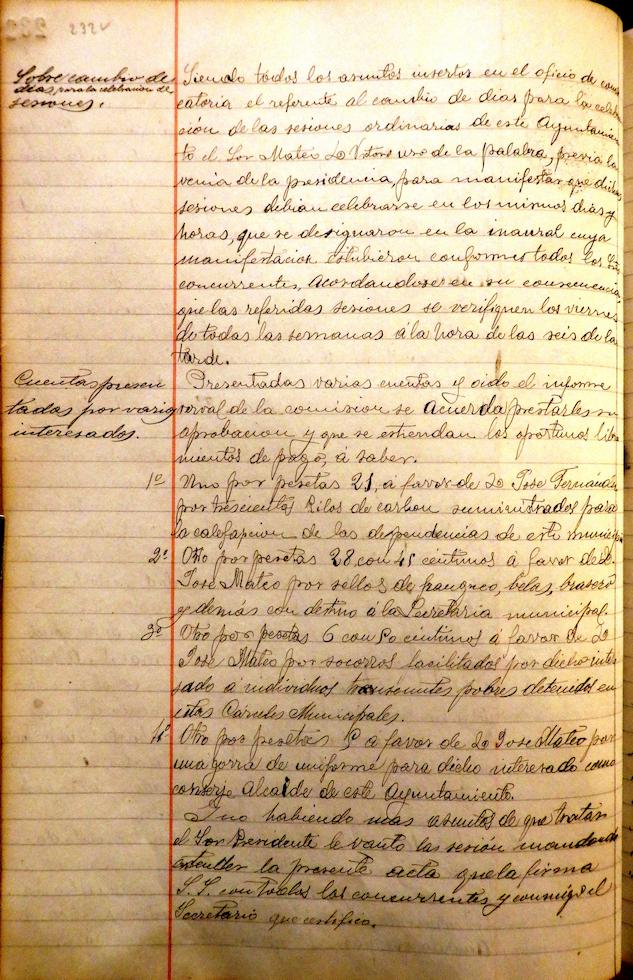 232v
Sobre cambio de
dias para la celebracion de
sesiones.
Siendo todos los asuntos insertos en el oficio de convo
catoria el referente al cambio de dias para la celebra
ción de las sesiones ordinarias de este Ayuntamien
to el Sor Mateo Dn uso de la palabra, previa la
venia de la presidencia, para manifestar que dichas
sesiones debian celebrarse en los mismos dias y
horas, que se designaron en la inaural cuya
manifestacion estubieron conformes todos los Sres
concurrentes, acordandose en su consecuencia,
que las referidas sesiones se verifiquen los viernes
de todas las semanas á la hora de las seis de la
tarde.
Cuentas presen
tadas por varios
interesados.
Presentadas varias cuentas y oido el informe
verval de la comision se acuerda prestarles su
aprobacion y que se estiendan los oportunos libra
mientos de pago, á saber.
1º Uno por pesetas 21, á favor de Dn Jose Fernández
por trescientos Kilos de carbon suministrados para
la calefaccion de las dependencias de este municipio
2º Otro por pesetas 28 con 45 centimos á favor de Dn
Jose Mateo por sellos de franqueo, belas, brasero
y demás con destino á la Secretaria municipal.
3º Otro por pesetas 6 con 50 centimos á favor de Dn
Jose Mateo por socorros facilitados por dicho intere
sado á individuos transeuntes pobres detenidos en
estas Carceles Municipales.
4º Otro por pesetas 5 a favor de Dn Jose Mateo por
una gorra de uniforme para dicho interesado como
conserje Alcaide de este Ayuntamiento.
I no habiendo mas asuntos de que tratar
el Sor Presidente levanto la sesión mandando
estender la presente acta que la firma
S.S. con todos los concurrentes y conmigo el
Secretario que certifico.